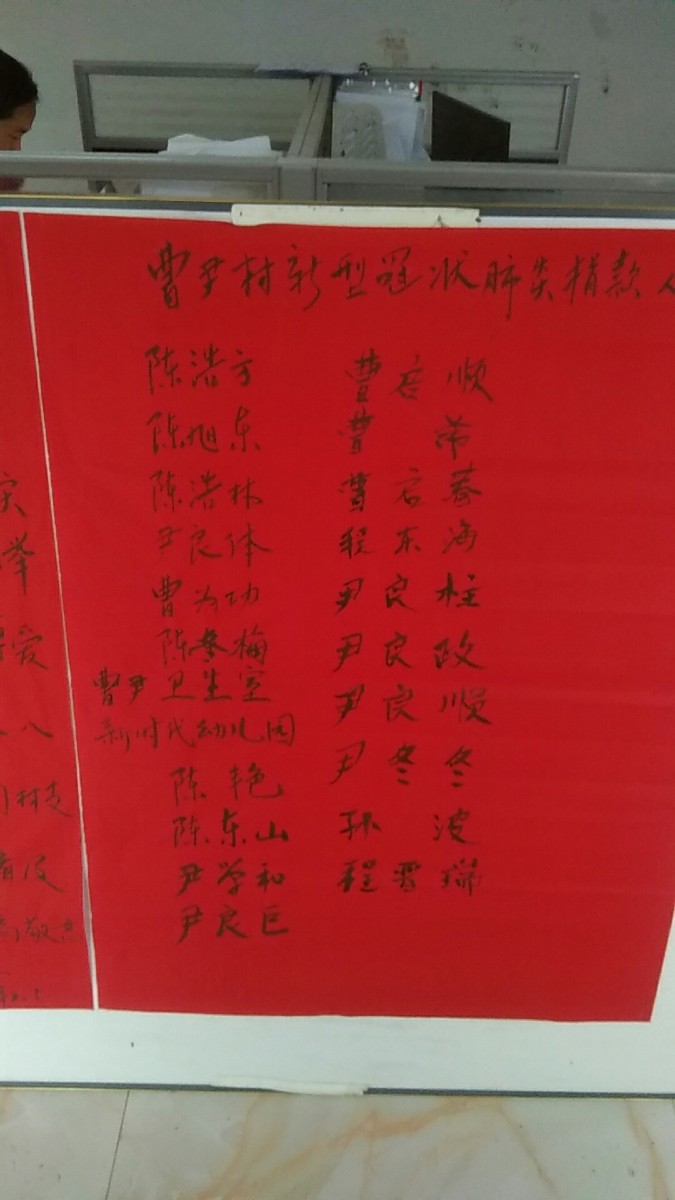 曹尹村新型冠状肺炎捐款人
陈浩方
陈旭东
陈浩林
尹良体
曹为功
陈冬梅
曹尹卫生室
新时代幼儿园
陈艳
陈东山
尹学和
尹良巨
曹启顺
曹帝
曹启春
程东海
尹良柱
尹良政
尹良顺
尹冬冬
孙波
程晋瑞
举
爱
八
村支
敬意